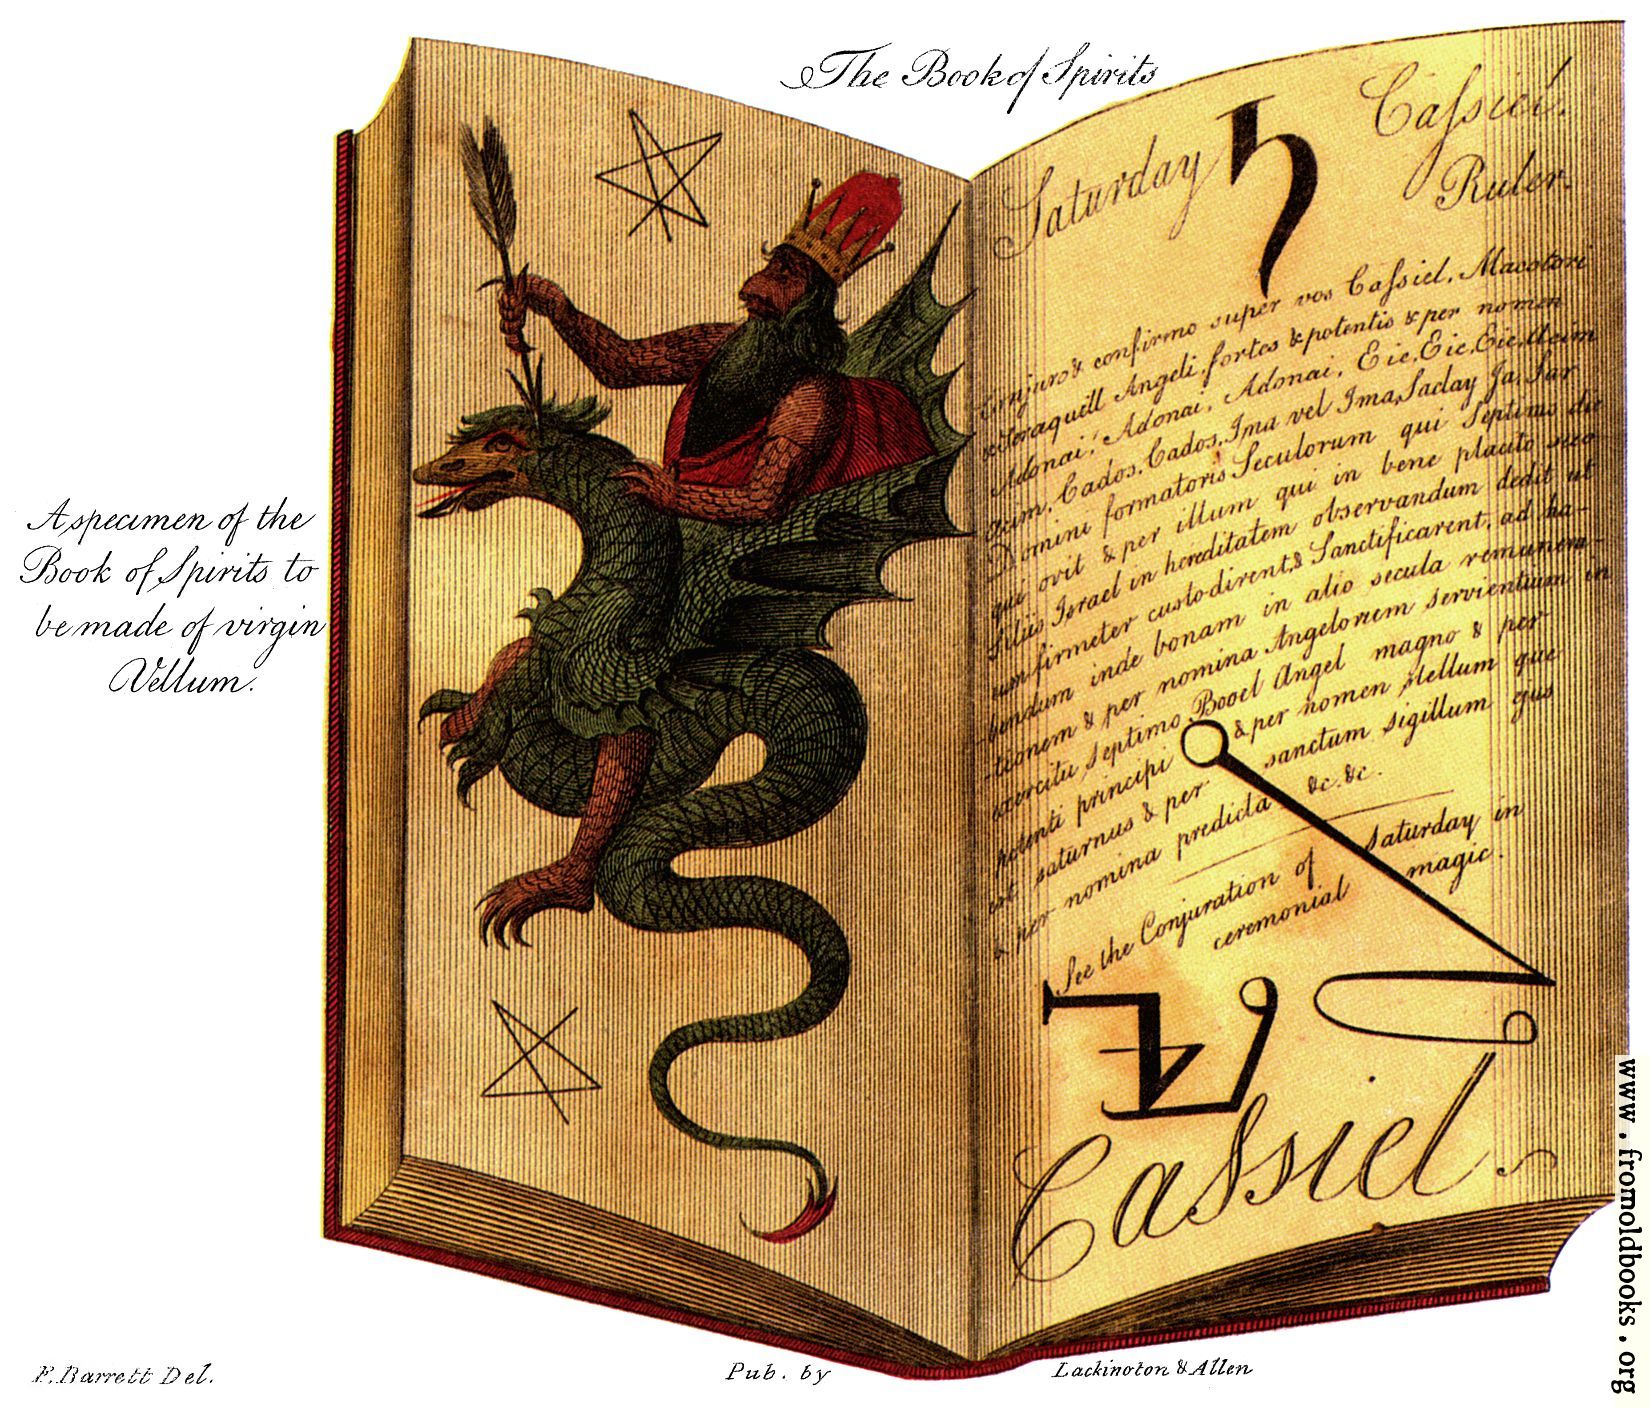 The Book of Spirits
A specimen of the
Book of Spirits to
be made of virgin
Vellum.
Saturday ♄ Caſsiel.
Ruler.
Conjuro & confirmo super vos Caſsiel, Macatori
Angeli, fortes & potentis & per nomen
Adonai, Adonai, Adonai, Eie, Eie, Eie, Acim
Acim, Cados, Cados, Ima vel Ima, Saday Ja, Sar
Domini formatoris Seculorum qui Septimo die
qui ovit & per illum qui in bene placito suo
filiis Israel in hereditatem observandum dedit ut
eum firmeter custodirent, & Sanctificarent, ad ha-
-bendum inde bonam in alio secula remunera-
-tionem & per nomina Angelorum servientium in
exercitu, Septimo, Booel Angel magno & per
potenti principi & per nomen stellum que
est saturnus & per sanctum sigillum ejus
& per nomina predicta &c. &c.
See the Conjuration of Saturday in
ceremonial magic.
Cassiel
F. Barrett Del.
Pub. by Lackington & Allen
www.fromoldbooks.org